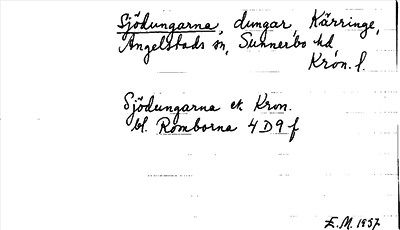 Sjödungarna, dungar, Kärringe,
Angelstads sn, Sunnerbo hd
Kron. l.
Sjödungarna ek. Kron.
bl. Romborna 4D9f
E.M. 1957